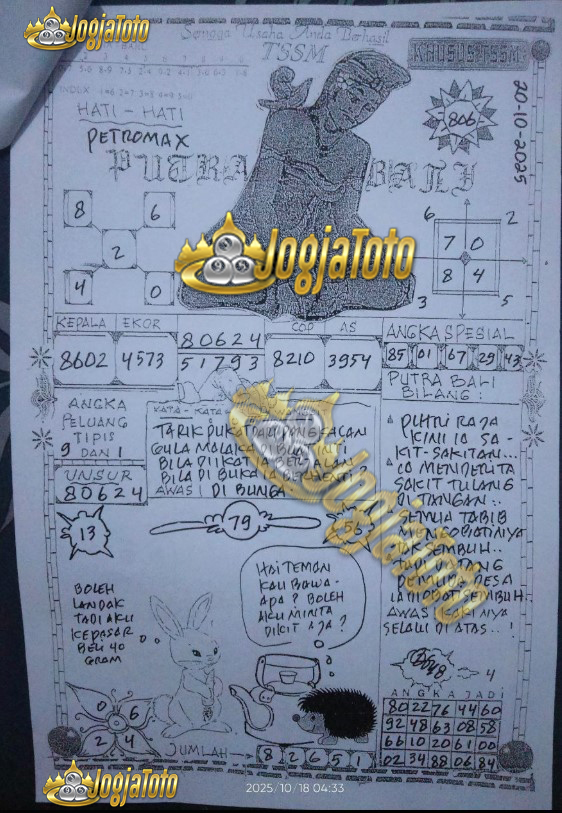 JogjaToto
Semoga Usaha Anda Berhasil
TSSM
KHUSUS TSSM
INDEX
HATI - HATI
PETROMAX
806
20-10-2025
PUTRA BALI
8 6
2
4 0
6 2
7 0
8 4
3 5
JogjaToto
KEPALA EKOR
8602 4573
80624
51793
COP AS
8210 3954
ANGKA SPESIAL
85 01 67 29 43
PUTRA BALI
BILANG :
ANGKA
PELUANG
TIPIS
9 DAN 1
UNSUR
80624
KATA - KATA
TARIK
GULA MALAKA
BILA DI IKAT IA BERJALAN
BILA DI BUKA IA
AWAS ! DI BUNGA
PUTRI RAJA
KINI IA SA -
KIT-SAKITAN...
IA MENDERITA
SAKIT TULANG
DI TANGAN..
SEMUA TABIB
MENGOBATINYA
TAK SEMBUH..
TAPI DATANG
PEMUDA DESA
SEMBUH..
AWAS ! KAKINYA
SELALU DI ATAS.. !
13
79
JogjaToto
HAI TEMAN
KAU BAWA -
APA ? BOLEH
AKU MINTA
DIKIT AJA ?
BOLEH
LANDAK
TADI AKU
KEPASAR
BELI 40
GRAM
4
0 6
2 4
JUMLAH
8 2 6 5 1
ANGKA JADI
80 22 76 44 60
92 48 63 08 58
66 10 20 61 00
02 34 88 06 84
JogjaToto
2025/10/18 04:33